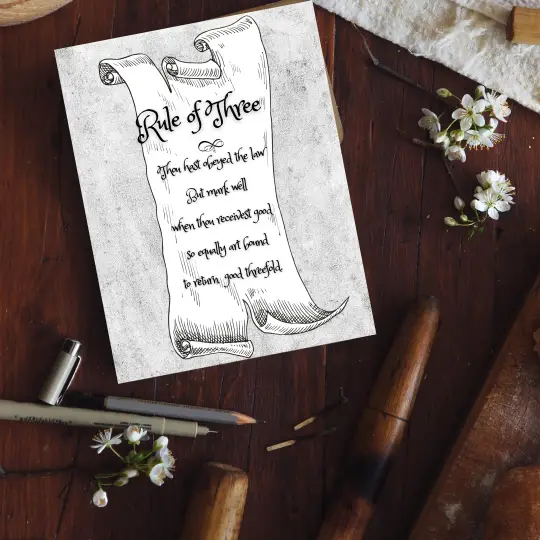 Rule of Three
Thou hast obeyed the law
But mark well
when thou receivest good
so equally art bound
to return, good threefold.